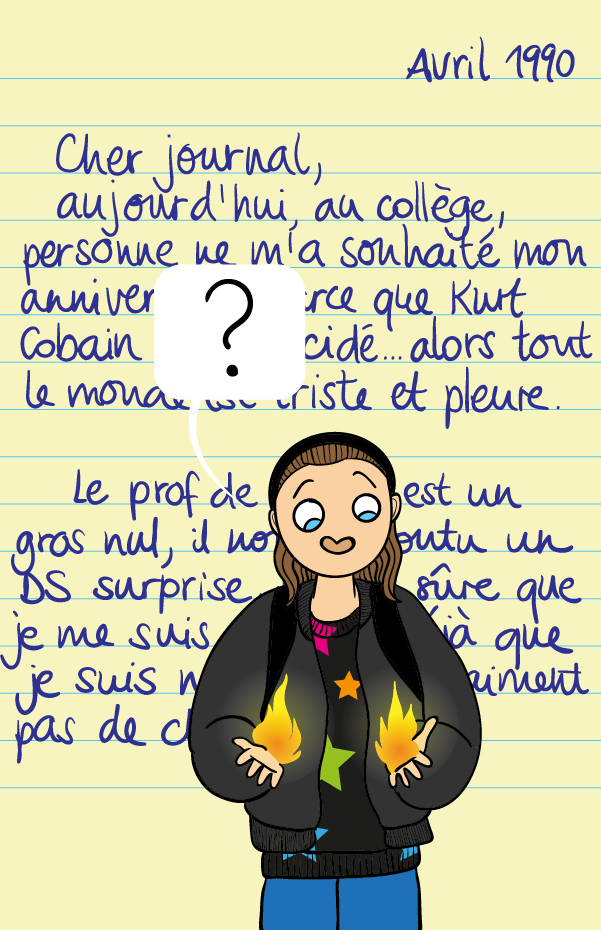 Avril 1990
Cher journal,
aujourd'hui, au collège,
personne ne m'a souhaité mon
que Kurt
Cobain alors tout
le monde est triste et pleure.
?
Le prof de est un
gros nul, il un
DS surprise. sûre que
je me suis que
je suis
pas de